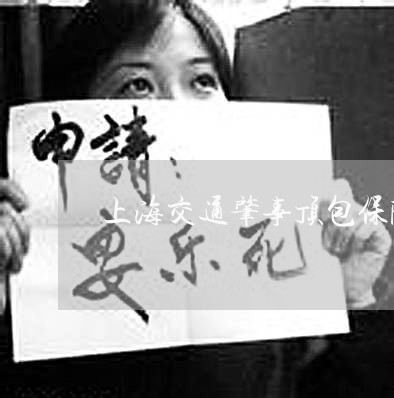 申請：
上海交通肇事顶包保
要乐死